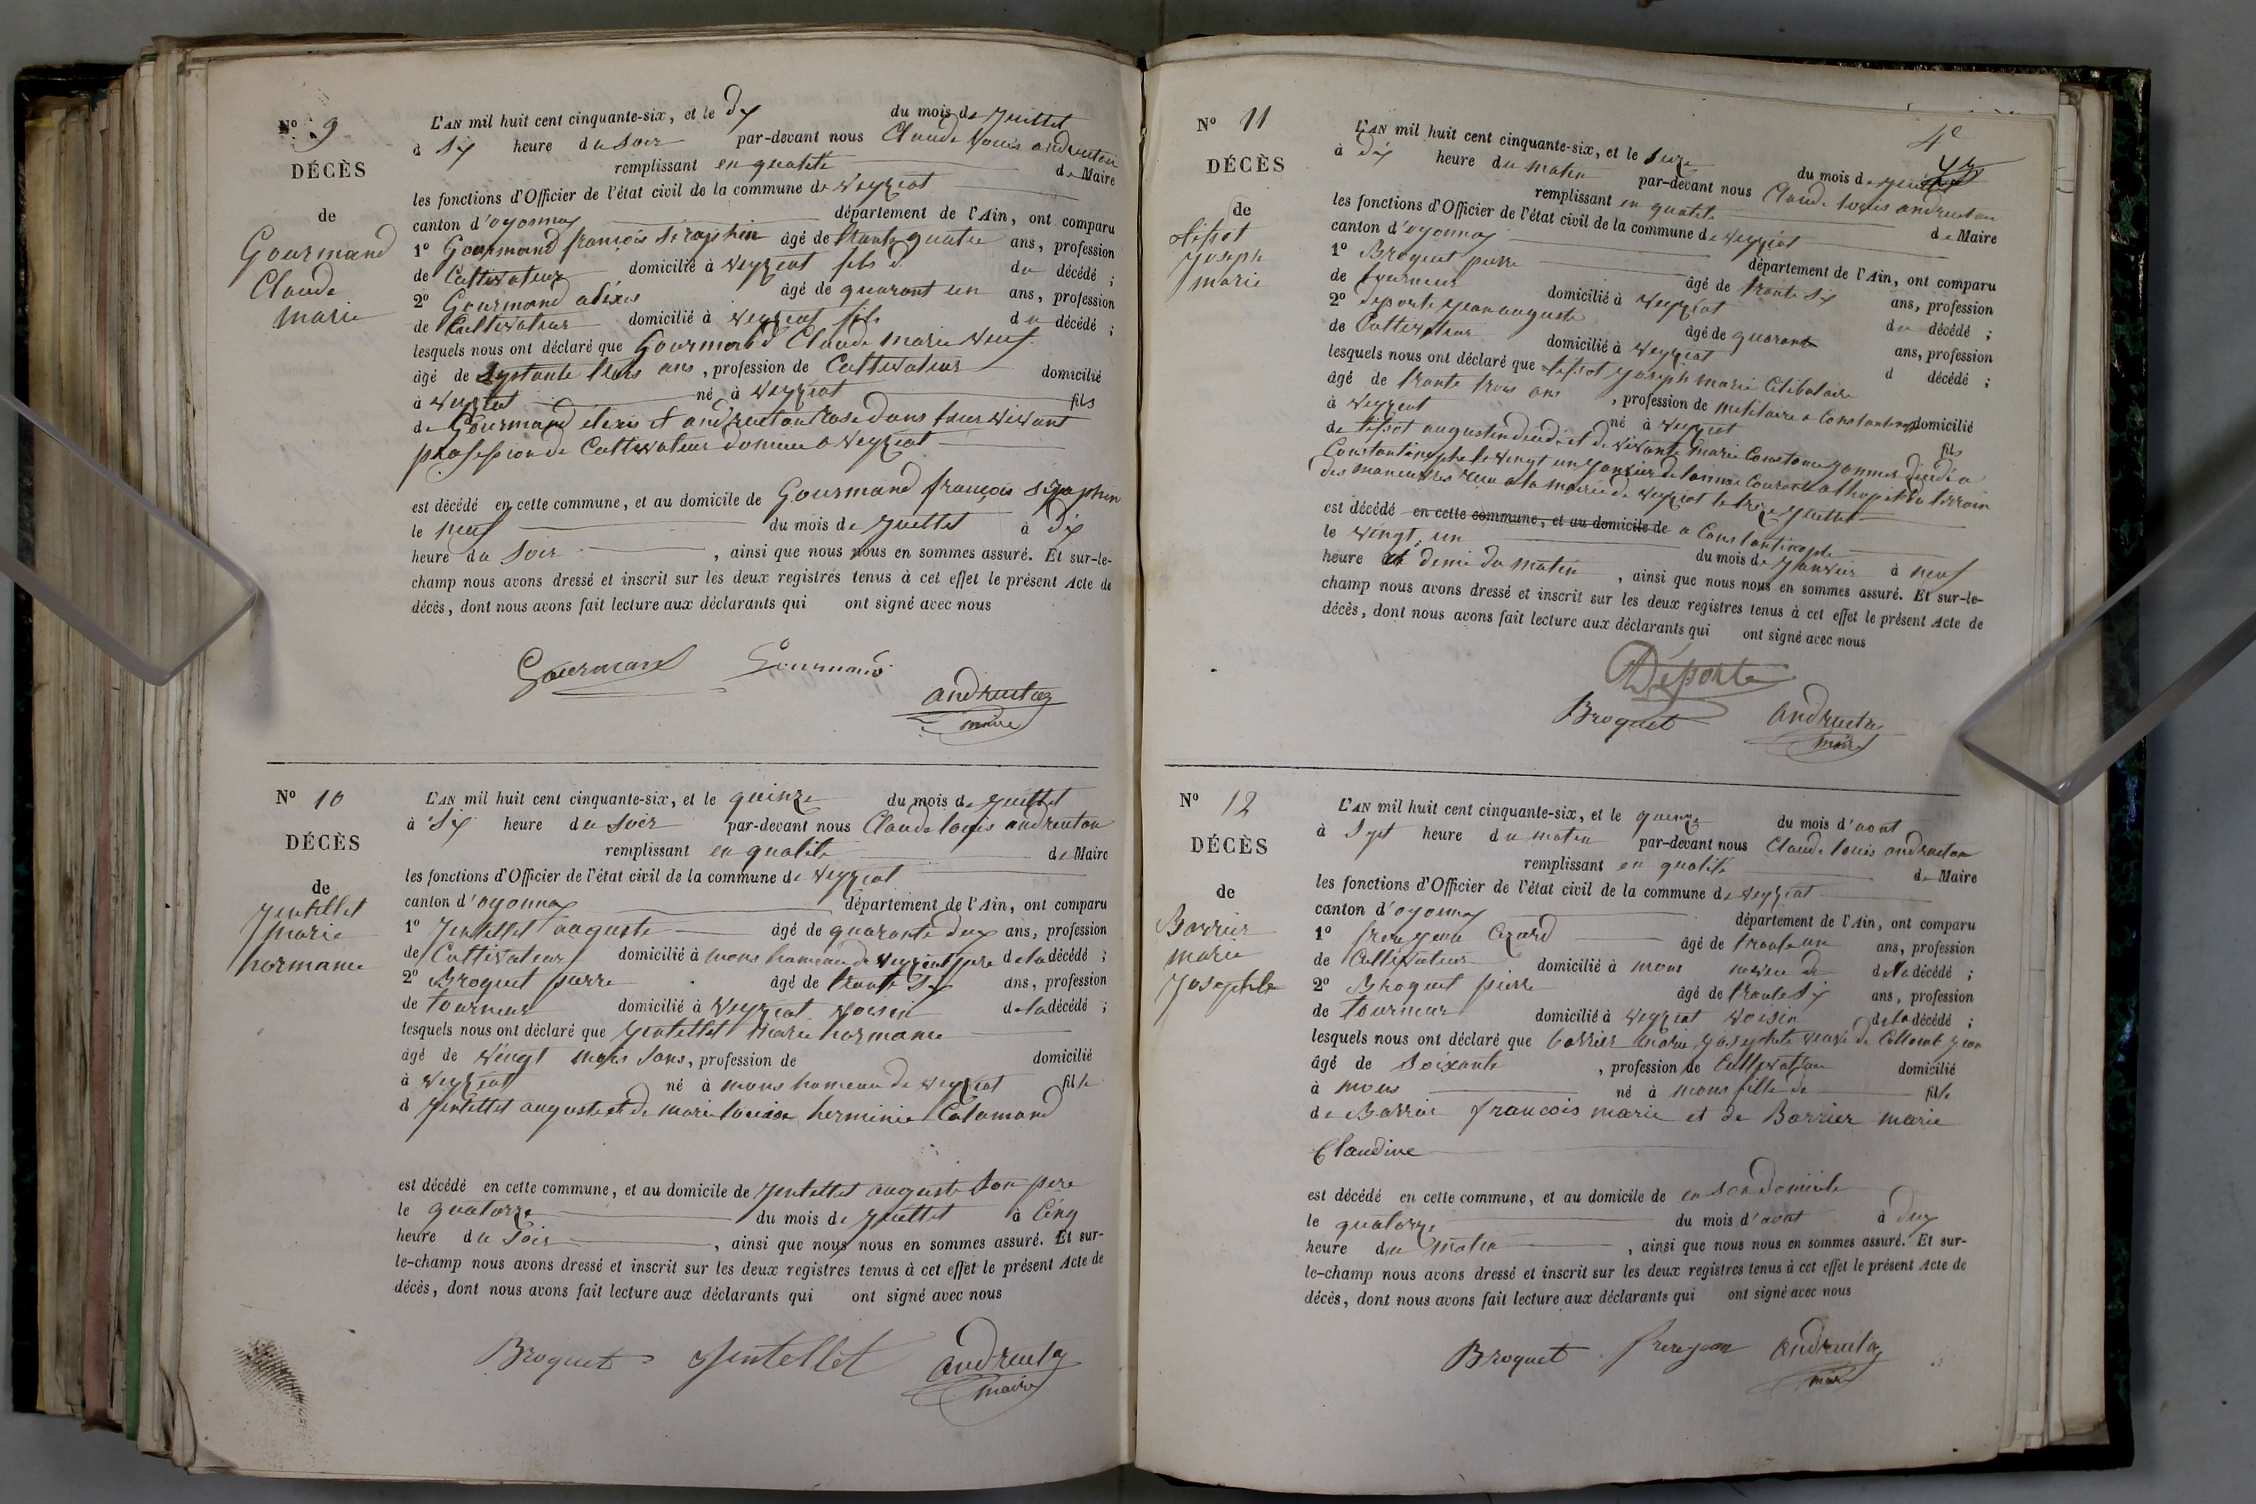 Nº 9
DÉCÈS
de
Gourmand
Claude
marie
L'AN mil huit cent cinquante-six, et le dix du mois de juillet
à six heure du soir par-devant nous Claude Louis andruetan
remplissant en qualité de Maire
les fonctions d'Officier de l'état civil de la commune de veyziat
canton d'oyonnax département de l'Ain, ont comparu
1º Gourmand françois Séraphin âgé de trante quatre ans, profession
de Cultivateur domicilié à veyziat fils d du décédé;
2º Gourmand aléxis âgé de quarant un ans, profession
de Cultivateur domicilié à veyziat fils du décédé;
lesquels nous ont déclaré que Gourmand Claude marie veuf
âgé de septante trois ans, profession de Cultivateur domicilié
à veyziat né à veyziat fils
de Gourmand et andruetan Rose dans leur vivant
profession de Cultivateur domicilié a veyziat
est décédé en cette commune, et au domicile de Gourmand françois séraphin
le neuf du mois de juillet à dix
heure du soir, ainsi que nous nous en sommes assuré. Et sur-le-
champ nous avons dressé et inscrit sur les deux registres tenus à cet effet le présent Acte de
décès, dont nous avons fait lecture aux déclarants qui ont signé avec nous
Gourmand Gourmand
andruetan
maire
Nº 10
DÉCÈS
de
Jentellet
marie
hormance
L'AN mil huit cent cinquante-six, et le quinze du mois de juillet
à six heure du soir par-devant nous Claude louis andruetan
remplissant en qualité de Maire
les fonctions d'Officier de l'état civil de la commune de veyziat
canton d'oyonnax département de l'Ain, ont comparu
1º Jentellet auguste âgé de quarante deux ans, profession
de Cultivateur domicilié à mons hameau de veyziat pere de la décédé;
2º Broquet pierre âgé de trante six ans, profession
de tourneur domicilié à veyziat voisin de la décédé;
lesquels nous ont déclaré que Jentellet marie hormance
âgé de vingt mois, profession de domicilié
à veyziat né à mons hameau de veyziat fille
d Jentellet auguste et de marie louise herminie Calamand
est décédé en cette commune, et au domicile de Jentellet auguste son pere
le quatorze du mois de juillet à cinq
heure du soir, ainsi que nous nous en sommes assuré. Et sur-
le-champ nous avons dressé et inscrit sur les deux registres tenus à cet effet le présent Acte de
décès, dont nous avons fait lecture aux déclarants qui ont signé avec nous
Broquet Jentellet andruetan
maire
4e
Nº 11
DÉCÈS
de
tissot
joseph
marie
L'AN mil huit cent cinquante-six, et le seize du mois de juillet
à dix heure du matin par-devant nous Claude louis andruetan
remplissant en qualité de Maire
les fonctions d'Officier de l'état civil de la commune de veyziat
canton d'oyonnax département de l'Ain, ont comparu
1º Broquet pierre âgé de trante six ans, profession
de tourneur domicilié à veyziat du décédé;
2º deporte jean auguste âgé de quarante ans, profession
de Cultivateur domicilié à veyziat d décédé;
lesquels nous ont déclaré que tissot joseph marie Célibataire
âgé de trante trois ans, profession de militaire a Constantinople domicilié
à veyziat né à veyziat fils
de tissot augustin et de vivante marie Constance
Constantinople le vingt un janvier de lannée Courante a lhopital du terrain
des manœuvres a la mairie de veyziat le treize juillet
est décédé en cette commune, et au domicile de a Constantinople
le vingt, un du mois de janvier à neuf
heure et demi du matin, ainsi que nous nous en sommes assuré. Et sur-le-
champ nous avons dressé et inscrit sur les deux registres tenus à cet effet le présent Acte de
décès, dont nous avons fait lecture aux déclarants qui ont signé avec nous
Deporte
Broquet andruetan
maire
Nº 12
DÉCÈS
de
Barrier
marie
Josephte
L'AN mil huit cent cinquante-six, et le quinze du mois d'aout
à sept heure du matin par-devant nous Claude louis andruetan
remplissant en qualité de Maire
les fonctions d'Officier de l'état civil de la commune de veyziat
canton d'oyonnax département de l'Ain, ont comparu
1º frerejean Cézard âgé de trante un ans, profession
de Cultivateur domicilié à mons neveu de de la décédé;
2º Broquet pierre âgé de trante six ans, profession
de tourneur domicilié à veyziat voisin de la décédé;
lesquels nous ont déclaré que barrier marie josephte veuve de Collomb jean
âgé de soixante, profession de Cultivateur domicilié
à mons né à mons fille de fille
de Barrier francois marie et de Barrier marie
Claudine
est décédé en cette commune, et au domicile de en son domicile
le quatorze du mois d'aout à deux
heure du matin, ainsi que nous nous en sommes assuré. Et sur-
le-champ nous avons dressé et inscrit sur les deux registres tenus à cet effet le présent Acte de
décès, dont nous avons fait lecture aux déclarants qui ont signé avec nous
Broquet frerejean andruetan
maire